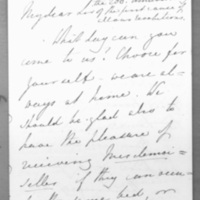 the
My dear
of the first cause of
What day can you
come to us? Choose for
yourself. we are al-
ways at home. We
should be glad also to
have the pleasure of
receiving Mesdemoi-
selles if they can
bed, or